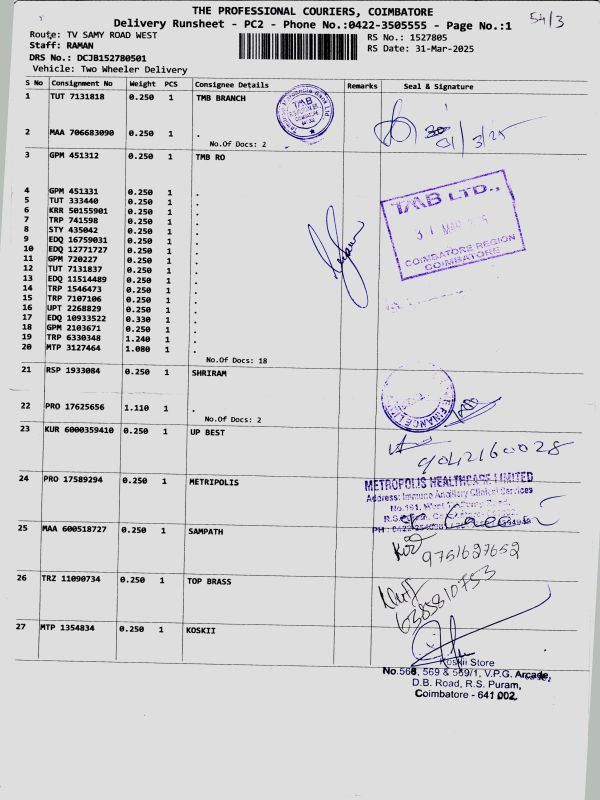 THE PROFESSIONAL COURIERS, COIMBATORE
54/3
Delivery Runsheet - PC2 - Phone No.:0422-3505555 - Page No.:1
Route: TV SAMY ROAD WEST
RS No.: 1527805
Staff: RAMAN
RS Date: 31-Mar-2025
DRS No.: DCJB152780501
Vehicle: Two Wheeler Delivery
S No Consignment No Weight PCS Consignee Details Remarks Seal & Signature
1 TUT 7131818 0.250 1 TMB BRANCH
TMB
2 MAA 706683090 0.250 1 .
31/3/25
No.Of Docs: 2
3 GPM 451312 0.250 1 TMB RO
4 GPM 451331 0.250 1 .
5 TUT 333440 0.250 1 .
6 KRR 50155901 0.250 1 .
7 TRP 741598 0.250 1 .
8 STY 435042 0.250 1 .
9 EDQ 16759031 0.250 1 .
10 EDQ 12771727 0.250 1 .
11 GPM 720227 0.250 1 .
12 TUT 7131837 0.250 1 .
13 EDQ 11514489 0.250 1 .
14 TRP 1546473 0.250 1 .
15 TRP 7107106 0.250 1 .
16 UPT 2268829 0.250 1 .
17 EDQ 10933522 0.330 1 .
18 GPM 2103671 0.250 1 .
19 TRP 6330348 1.240 1 .
20 MTP 3127464 1.080 1 .
TMB LTD.,
31 MAR
COIMBATORE REGION
COIMBATORE
No.Of Docs: 18
21 RSP 1933084 0.250 1 SHRIRAM
22 PRO 17625656 1.110 1 .
FINANCE
No.Of Docs: 2
23 KUR 6000359410 0.250 1 UP BEST
9042160028
24 PRO 17589294 0.250 1 METRIPOLIS
METROPOLIS HEALTHCARE LIMITED
Address: Immuno Ancillary Clinical Services
25 MAA 600518727 0.250 1 SAMPATH
9751627652
26 TRZ 11090734 0.250 1 TOP BRASS
6385810753
27 MTP 1354834 0.250 1 KOSKII
Koskii Store
No.568, 569 & 569/1, V.P.G. Arcade,
D.B. Road, R.S. Puram,
Coimbatore - 641 002.